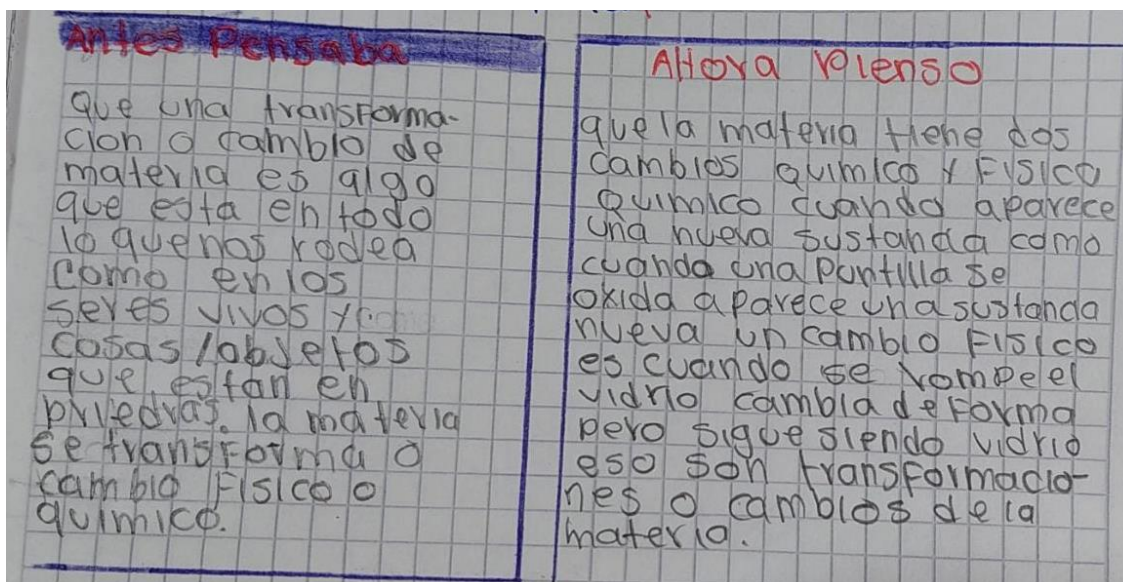 Antes Pensaba
que una transforma-
cion o cambio de
materia es algo
que esta en todo
lo que nos rodea
como en los
seres vivos y
cosas/objetos
que estan en
priedras. la materia
se transforma o
cambio Fisico o
quimico.
AHora Pienso
que la materia tiene dos
cambios quimico y Fisico
Quimico cuando aparece
una nueva sustancia como
cuando una puntilla se
oxida aparece una sustancia
nueva un cambio Fisico
es cuando se rompe el
vidrio cambia de Forma
pero sigue siendo vidrio
eso son transformacio-
nes o cambios de la
materia.